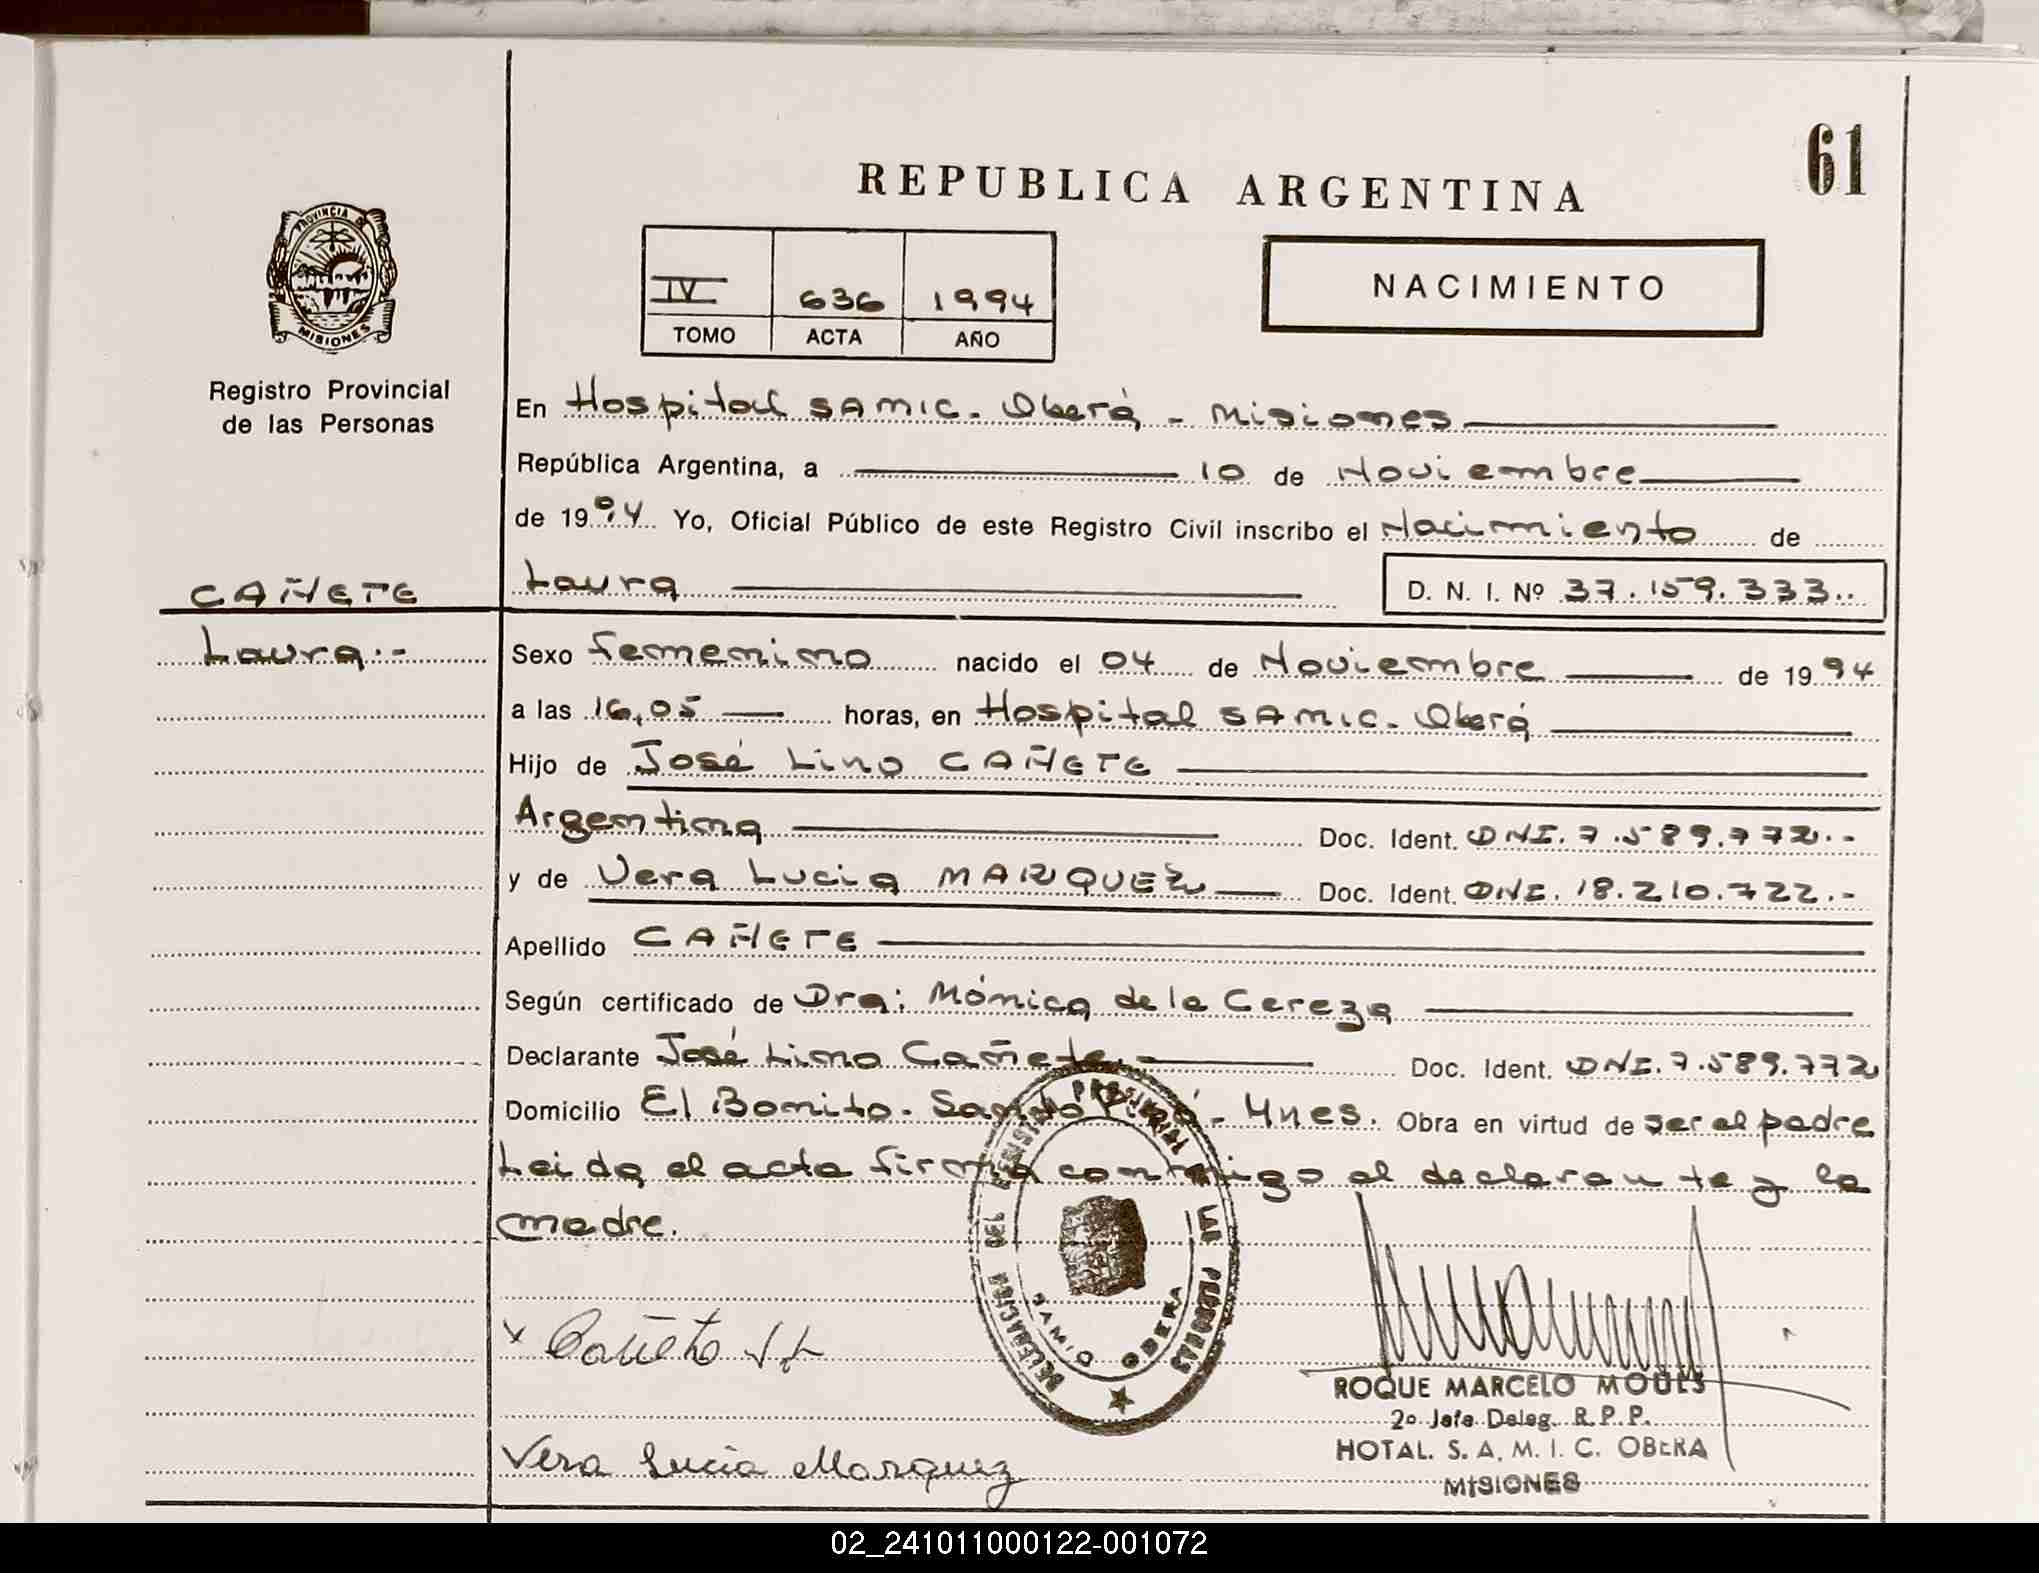 61
REPUBLICA ARGENTINA
PROVINCIA DE
MISIONES
Registro Provincial
de las Personas
IV 636 1994
TOMO ACTA AÑO
NACIMIENTO
En Hospital SAMIC. Oberá - Misiones
República Argentina, a 10 de Noviembre
de 1994 Yo, Oficial Público de este Registro Civil inscribo el Nacimiento de
CAÑETE Laura D. N. I. Nº 37.159.333..
Laura.- Sexo Femenino nacido el 04 de Noviembre de 1994
a las 16,05 horas, en Hospital SAMIC. Oberá
Hijo de José Lino CAÑETE
Argentina Doc. Ident. DNI. 7.589.772.-
y de Vera Lucia MARQUEZ Doc. Ident. DNI. 18.210.722.-
Apellido CAÑETE
Según certificado de Dra: Mónica de la Cereza
Declarante José Lino Cañete.- Doc. Ident. DNI. 7.589.772
Domicilio El Bonito. - Mnes. Obra en virtud de ser el padre
Leida el acta firma conmigo el declarante y la
madre.
DELEGACION DEL REGISTRO PROVINCIAL DE LAS PERSONAS
SAMIC OBERA
x Cañete J L
Vera Lucia Marquez
ROQUE MARCELO MOULS
2º Jefe Deleg. R. P. P.
HOTAL. S. A. M. I. C. OBERA
MISIONES
02_241011000122-001072